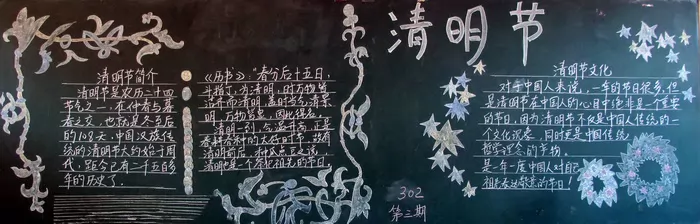 清明节
清明节简介
清明节是农历二十四
节气之一，在仲春与暮
春之交，也就是冬至后
的108天，中国汉族传
统的清明节大约始于周
代，距今已有二千五百多
年的历史了。
《历书》：“春分后十五日，
斗指丁，为清明，时万物皆
洁齐而清明，盖时当气清景
明，万物皆显，因此得名。
清明一到，气温升高，正是
春耕春种的大好时节，故有
清明前后，种瓜点豆之说。
清明也是一个祭祀祖先的节日，
清明节文化
对于中国人来说，一年的节日很多，但
是清明节在中国人的心目中绝非是一个重要
的节日，因为清明节不仅是中国人传统的一
个文化沉奏，同时更是中国传统
哲学理念的
是一年一度中国人对自己
祖先表达敬意的节日！
302
第三期